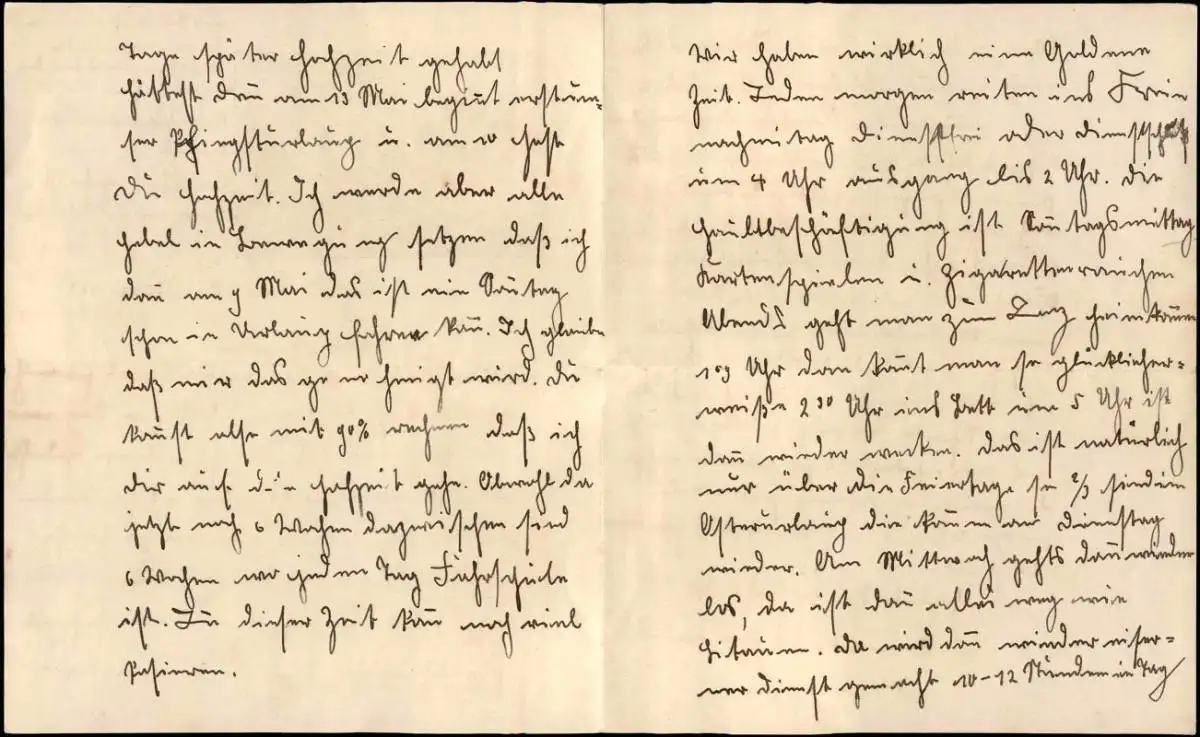 Tage später Hochzeit gehabt
hättest Den am 13 Mai begint erst un=
ser Pfingsturlaub u. am 10 hast
Du Hochzeit. Ich werde aber alle
Hebel in Bewegung setzen daß ich
dan am 9 Mai das ist ein Sontag
schon in Urlaub fahren kan. Ich glaube
daß mir das genehmigt wird. Du
kanst also mit 90% rechnen daß ich
Dir auf die Hochzeit gehe. Obwohl da
jetzt noch 6 Wochen dazwischen sind
6 Wochen wo jeden Tag Fahrschule
ist. In dieser Zeit kan noch viel
Pasieren.
Wir haben wirklich eine Goldene
Zeit. Jeden morgen reiten ins Freie
nachmitag dienstfrei oder
um 4 Uhr ausgang bis 2 Uhr. Die
Hauptbeschäftigung ist Sontagsmittag
Kartenspielen u. Zigarettenrauchen
Abends geht man zum Tanz heimkomen
1 Uhr dan komt man so glücklicher=
weiße 2 30 Uhr ins Bett um 5 Uhr ist
dan wieder wecken. Das ist natürlich
nur über die Feiertage so 2/3 sind im
Osterurlaub die komen am Dienstag
wieder. Am Mittwoch gehts dan wieder
los, da ist dan allei weg wie
hi. Da wird dan wieder eiser=
ner Dienst gemacht 10-12 Stunden im Tag